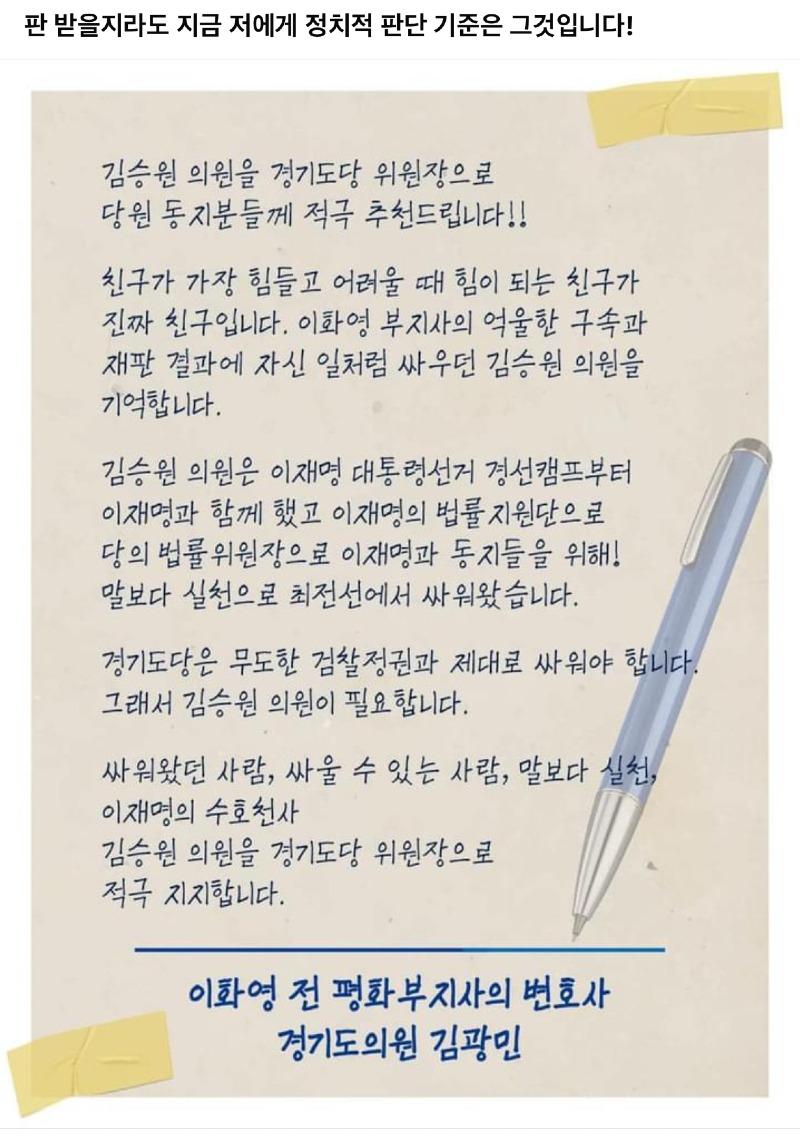 판 받을지라도 지금 저에게 정치적 판단 기준은 그것입니다!
김승원 의원을 경기도당 위원장으로
당원 동지분들께 적극 추천드립니다!!
친구가 가장 힘들고 어려울 때 힘이 되는 친구가
진짜 친구입니다. 이화영 부지사의 억울한 구속과
재판 결과에 자신 일처럼 싸우던 김승원 의원을
기억합니다.
김승원 의원은 이재명 대통령선거 경선캠프부터
이재명과 함께 했고 이재명의 법률지원단으로
당의 법률위원장으로 이재명과 동지들을 위해!
말보다 실천으로 최전선에서 싸워왔습니다.
경기도당은 무도한 검찰정권과 제대로 싸워야 합니다.
그래서 김승원 의원이 필요합니다.
싸워왔던 사람, 싸울 수 있는 사람, 말보다 실천,
이재명의 수호천사
김승원 의원을 경기도당 위원장으로
적극 지지합니다.
이화영 전 평화부지사의 변호사
경기도의원 김광민